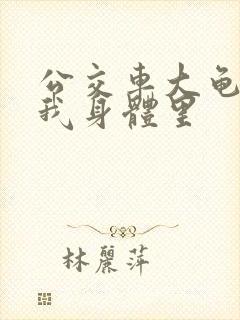 公交車大龟
我身體里
林麗萍